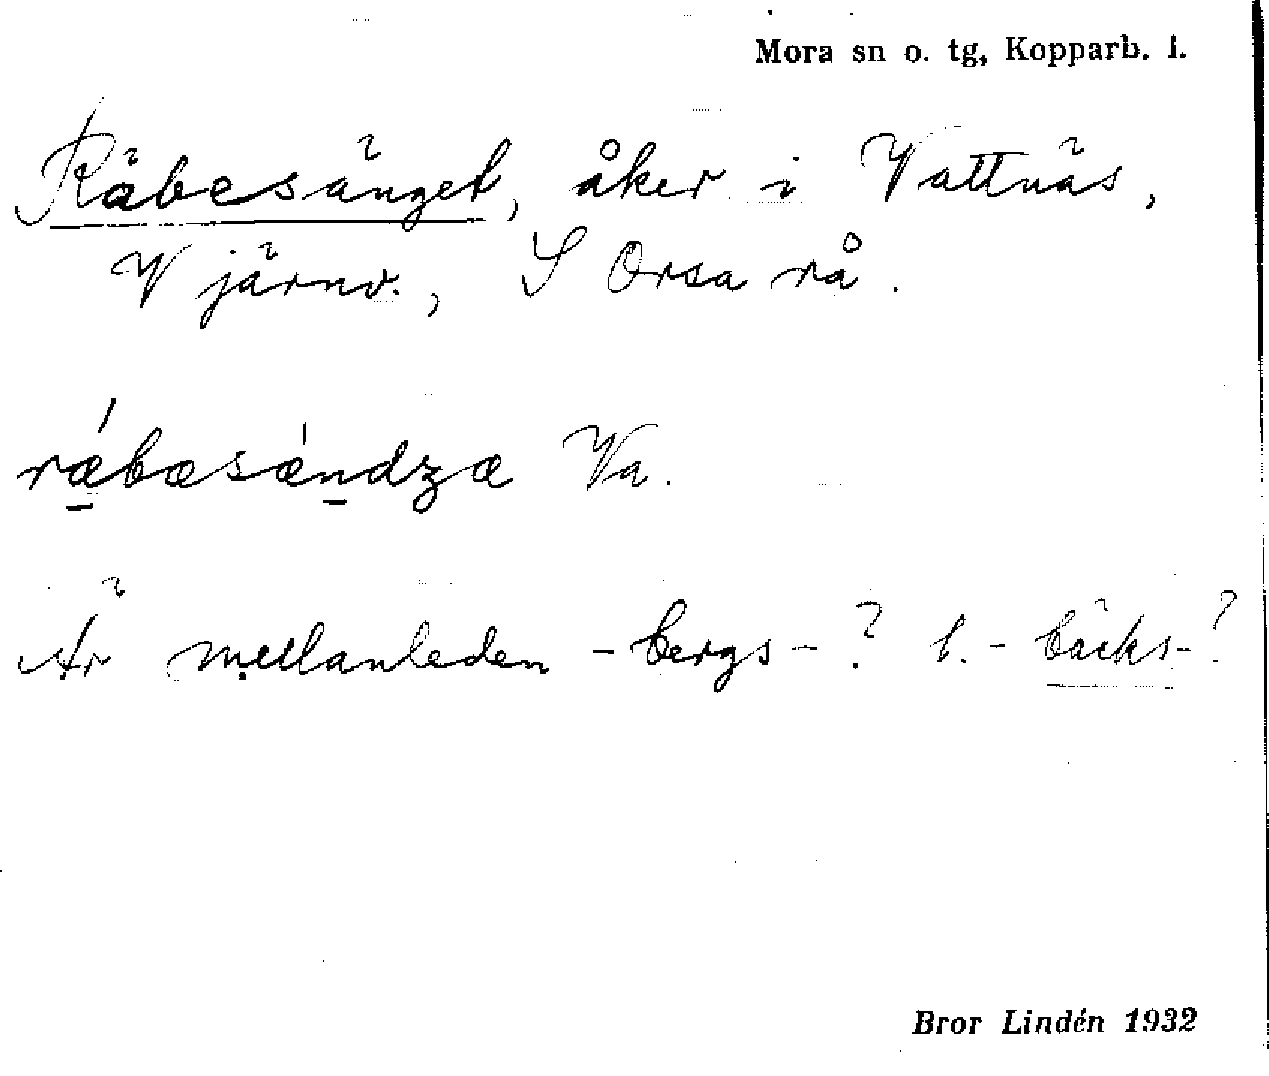 Mora sn o. tg, Kopparb. l.
Räbesänget, åker i Vattnäs,
V järnv., S Orsa rå.
rǽbæsǽndzæ Va.
Är mellanleden -bergs-? l. -bäcks-?
Bror Lindén 1932